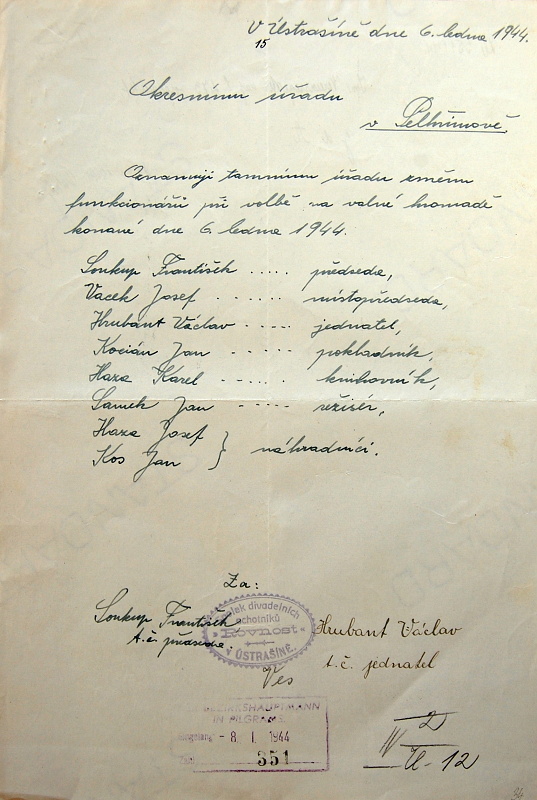 V Ústrašíně dne 6. ledna 1944.
15
Okresnímu úřadu
v Pelhřimově.
Oznamuji tamnímu úřadu změnu
funkcionářů při volbě na valné hromadě
konané dne 6. ledna 1944.
Soukup František ..... předseda,
Vacek Josef ...... místopředseda,
Hrubant Václav ..... jednatel,
Kocián Jan ...... pokladník,
Haza Karel ...... knihovník,
Samek Jan ...... režisér,
Haza Josef
Kos Jan } náhradníci.
Za:
Soukup František
t.č. předseda.
divadelních
ochotníků
„Rovnost“
v ÚSTRAŠÍNĚ
Hrubant Václav
t.č. jednatel
Ves
BEZIRKSHAUPTMANN
IN PILGRAMS
- 8. I. 1944
351
IV 2
U-12